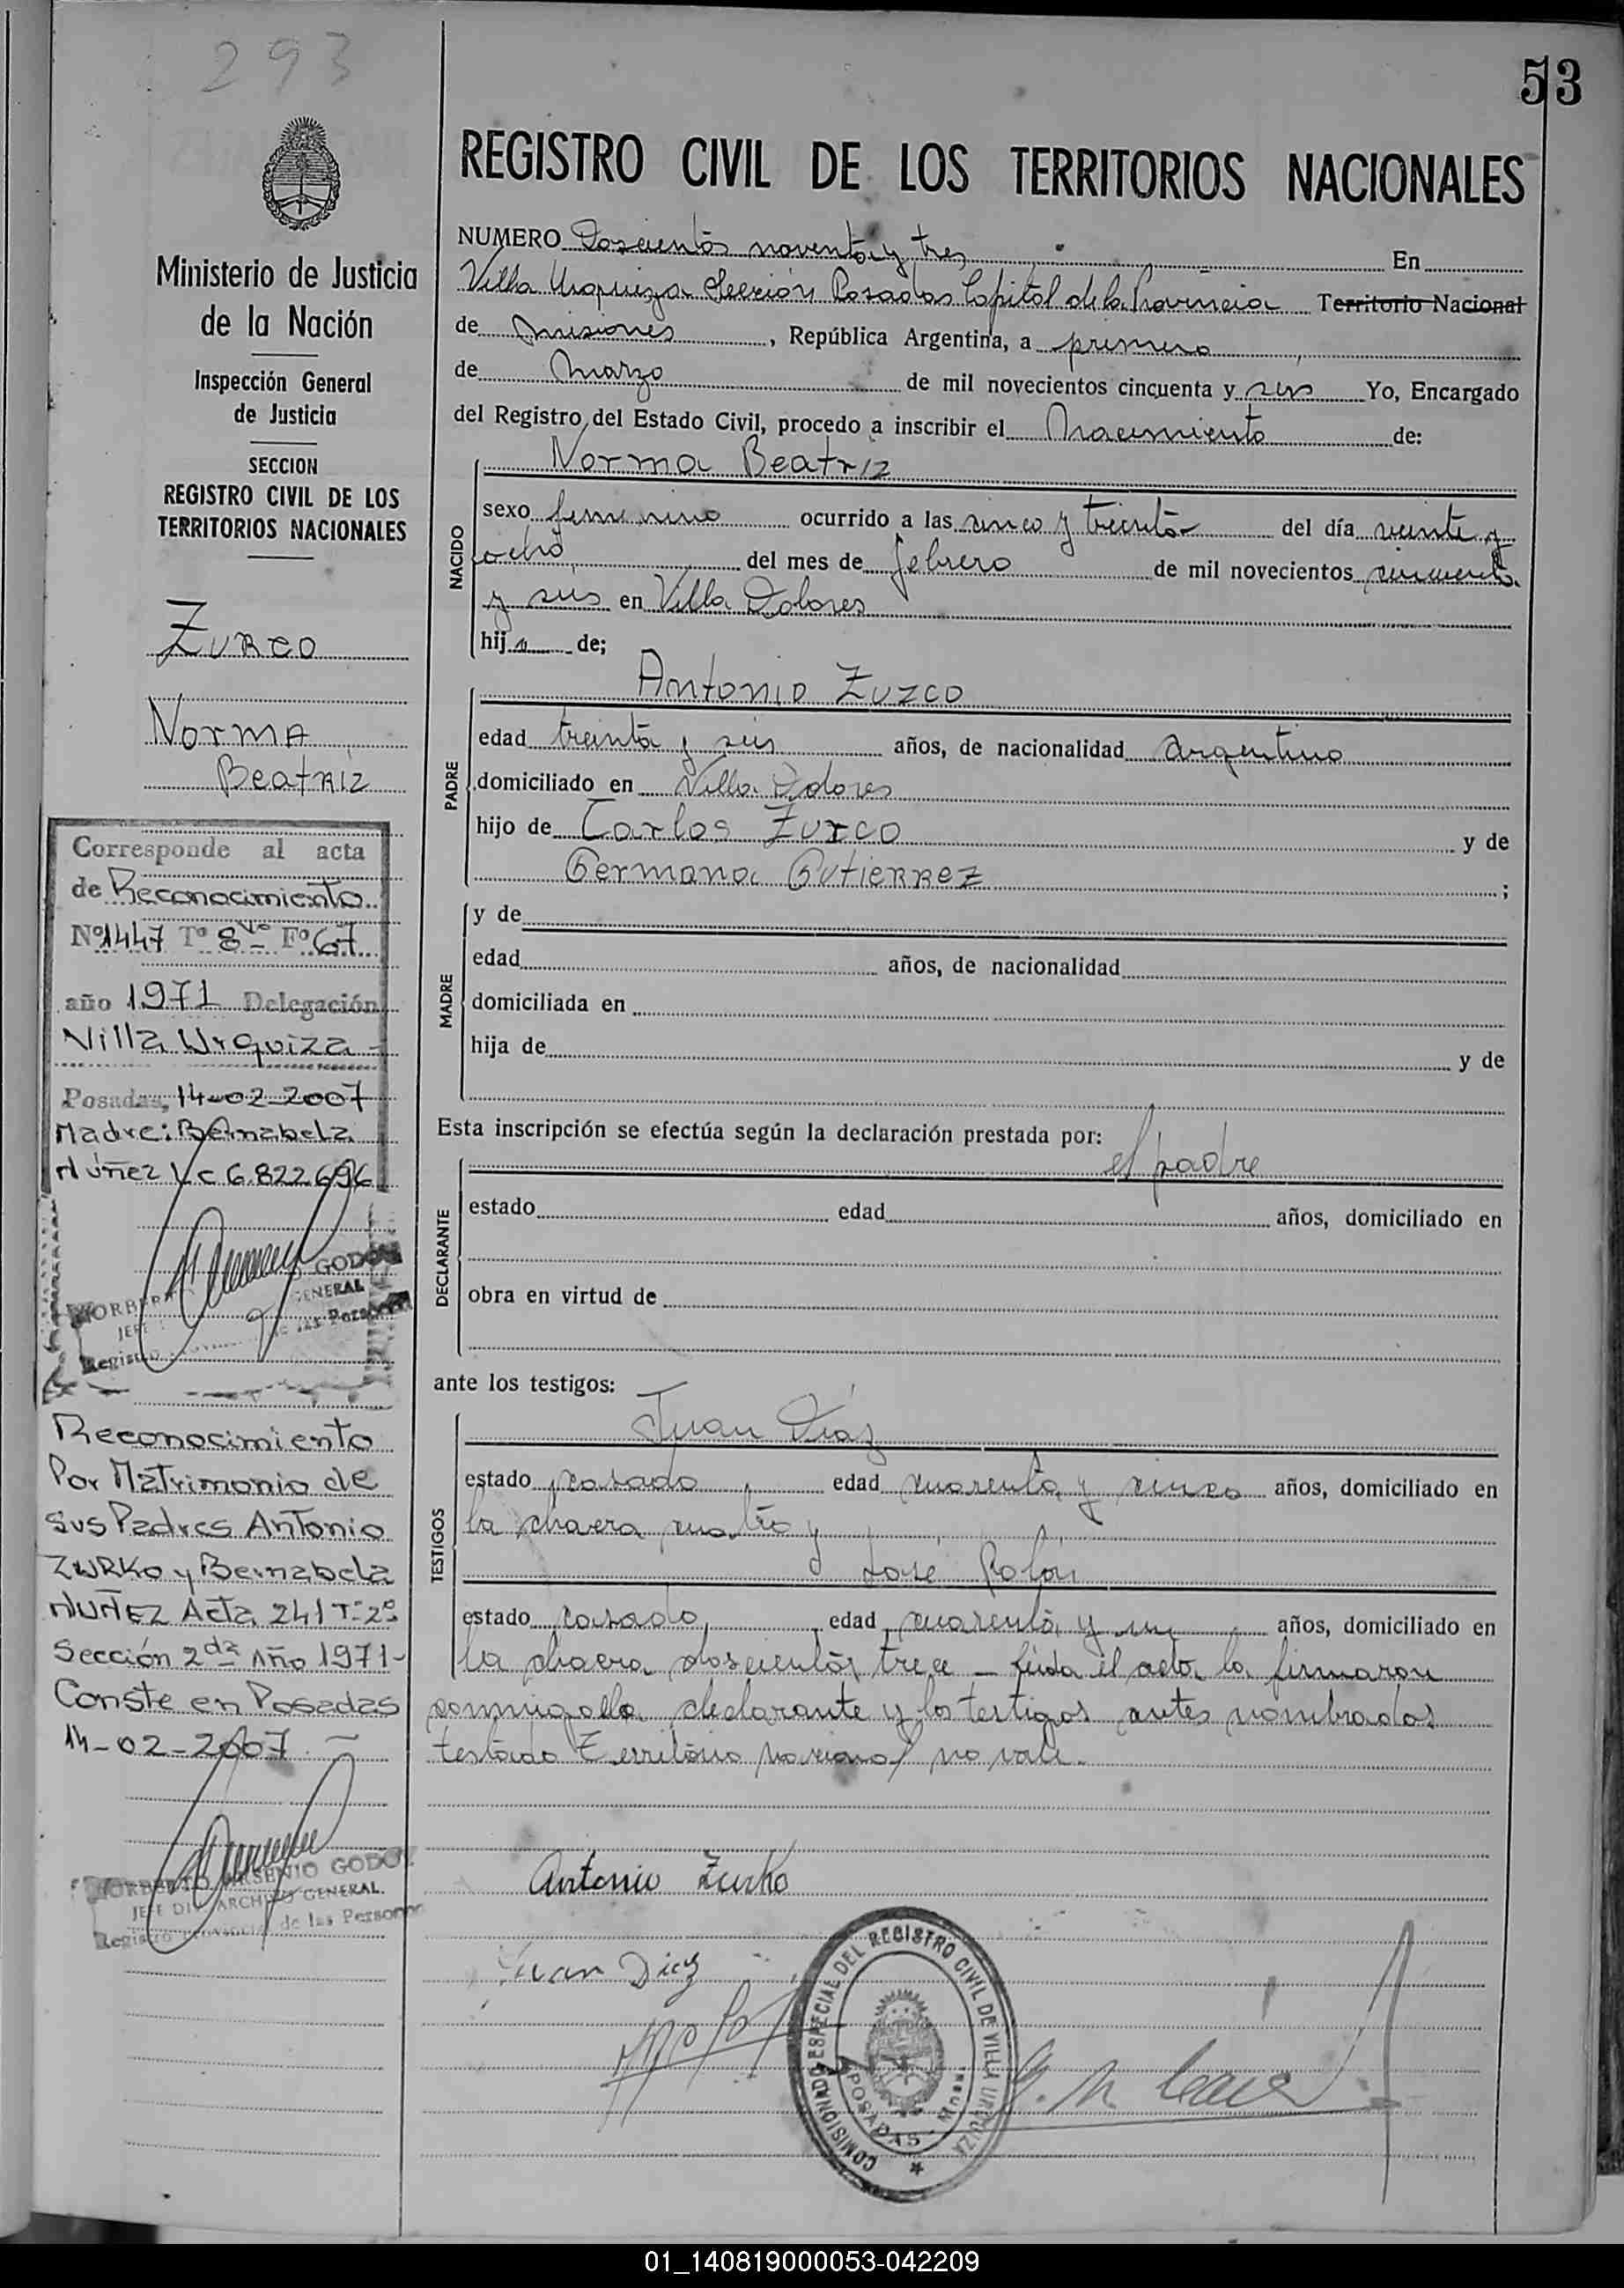 293
53
REGISTRO CIVIL DE LOS TERRITORIOS NACIONALES
Ministerio de Justicia
de la Nación
Inspección General
de Justicia
SECCION
REGISTRO CIVIL DE LOS
TERRITORIOS NACIONALES
Zurco
Norma
Beatriz
Corresponde al acta
de Reconocimiento
Nº 1447 Tº 8vo Fº 67
año 1971 Delegación
Villa Urquiza -
Posadas, 14-02-2007
Madre: Bernabela
Núñez Lc 6.822.696
NORBERTO GODOY
JEFE GENERAL
Registro de las Personas
Reconocimiento
Por Matrimonio de
sus Padres Antonio
ZURKO y Bernabela
NUÑEZ Acta 241 Tº 2º
Sección 2da Año 1971-
Conste en Posadas
14-02-2007
NORBERTO ARSENIO GODOY
JEFE DIV. ARCHIVO GENERAL
Registro Provincial de las Personas
NUMERO Doscientos noventa y tres En
Villa Urquiza Sección Posadas Capital de la Provincia Territorio Nacional
de Misiones, República Argentina, a primero
de Marzo de mil novecientos cincuenta y seis Yo, Encargado
del Registro del Estado Civil, procedo a inscribir el Nacimiento de:
NACIDO
Norma Beatriz
sexo femenino ocurrido a las cinco y treinta del día veinte y
ocho del mes de febrero de mil novecientos cincuenta
y seis en Villa Dolores
hija de;
PADRE
Antonio Zuzco
edad treinta y seis años, de nacionalidad Argentino
domiciliado en Villa Dolores
hijo de Carlos Zurco y de
Germana Gutierrez ;
MADRE
y de
edad años, de nacionalidad
domiciliada en
hija de y de
Esta inscripción se efectúa según la declaración prestada por:
el padre
DECLARANTE
estado edad años, domiciliado en
obra en virtud de
ante los testigos:
TESTIGOS
Juan Díaz
estado casado edad cuarenta y cinco años, domiciliado en
la chacra cuatro y
José Rolón
estado casado edad cuarenta y un años, domiciliado en
la chacra doscientos trece - leída el acta la firmaron
conmigo el declarante y los testigos antes nombrados
testado Territorio nacional no vale.
Antonio Zurko
Juan Diaz
COMISIONADO ESPECIAL DEL REGISTRO CIVIL DE VILLA URQUIZA
POSADAS
01_140819000053-042209